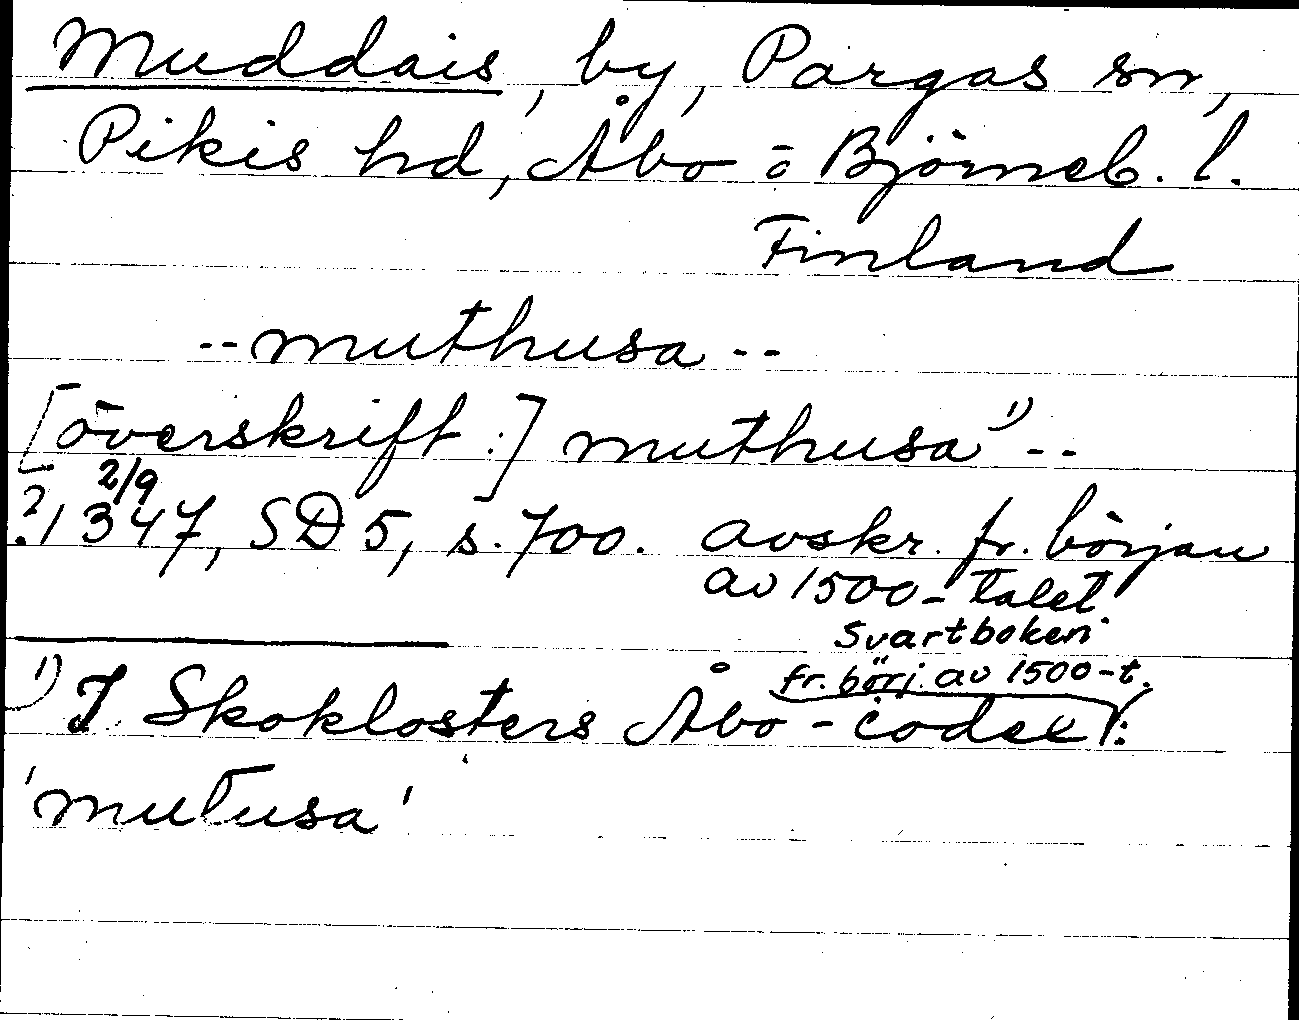 Muddais, by, Pargas sn,
Pikis hd, Åbo o Björneb. l.
Finland
-- muthusa --
[överskrift:] muthusa 1) --
2/9
?1347, SD 5, s. 700. avskr. fr. början
av 1500-talet
Svartboken
fr. börj. av 1500-t.
1) I Skoklosters Åbo-codex:
'mutusa'